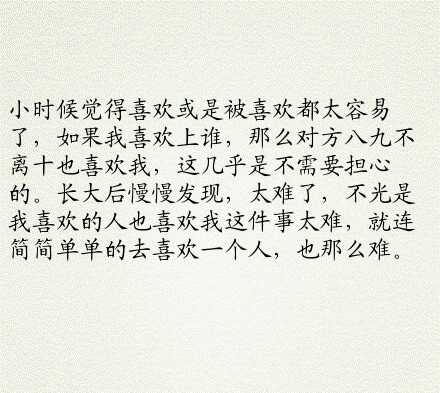 小时候觉得喜欢或是被喜欢都太容易
了，如果我喜欢上谁，那么对方八九不
离十也喜欢我，这几乎是不需要担心
的。长大后慢慢发现，太难了，不光是
我喜欢的人也喜欢我这件事太难，就连
简简单单的去喜欢一个人，也那么难。